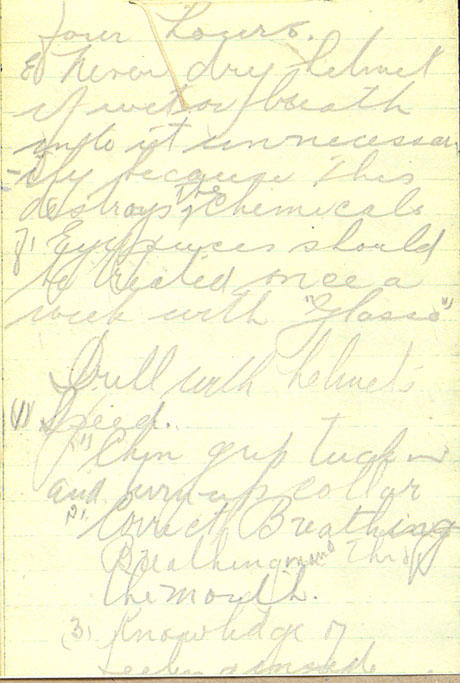 four hours.
6) Never dry helmet
if wet or breath
into it unnecessar-
-ily because this
destroys the chemicals
7) Eye pieces should
be treated once a
week with "Glasso"
Drill with helmets
(1) Speed.
(1) Chin grip tuck in
and turn up collar
(2) Correct Breathing
Breathing thro
the mouth.
(3) Knowledge of